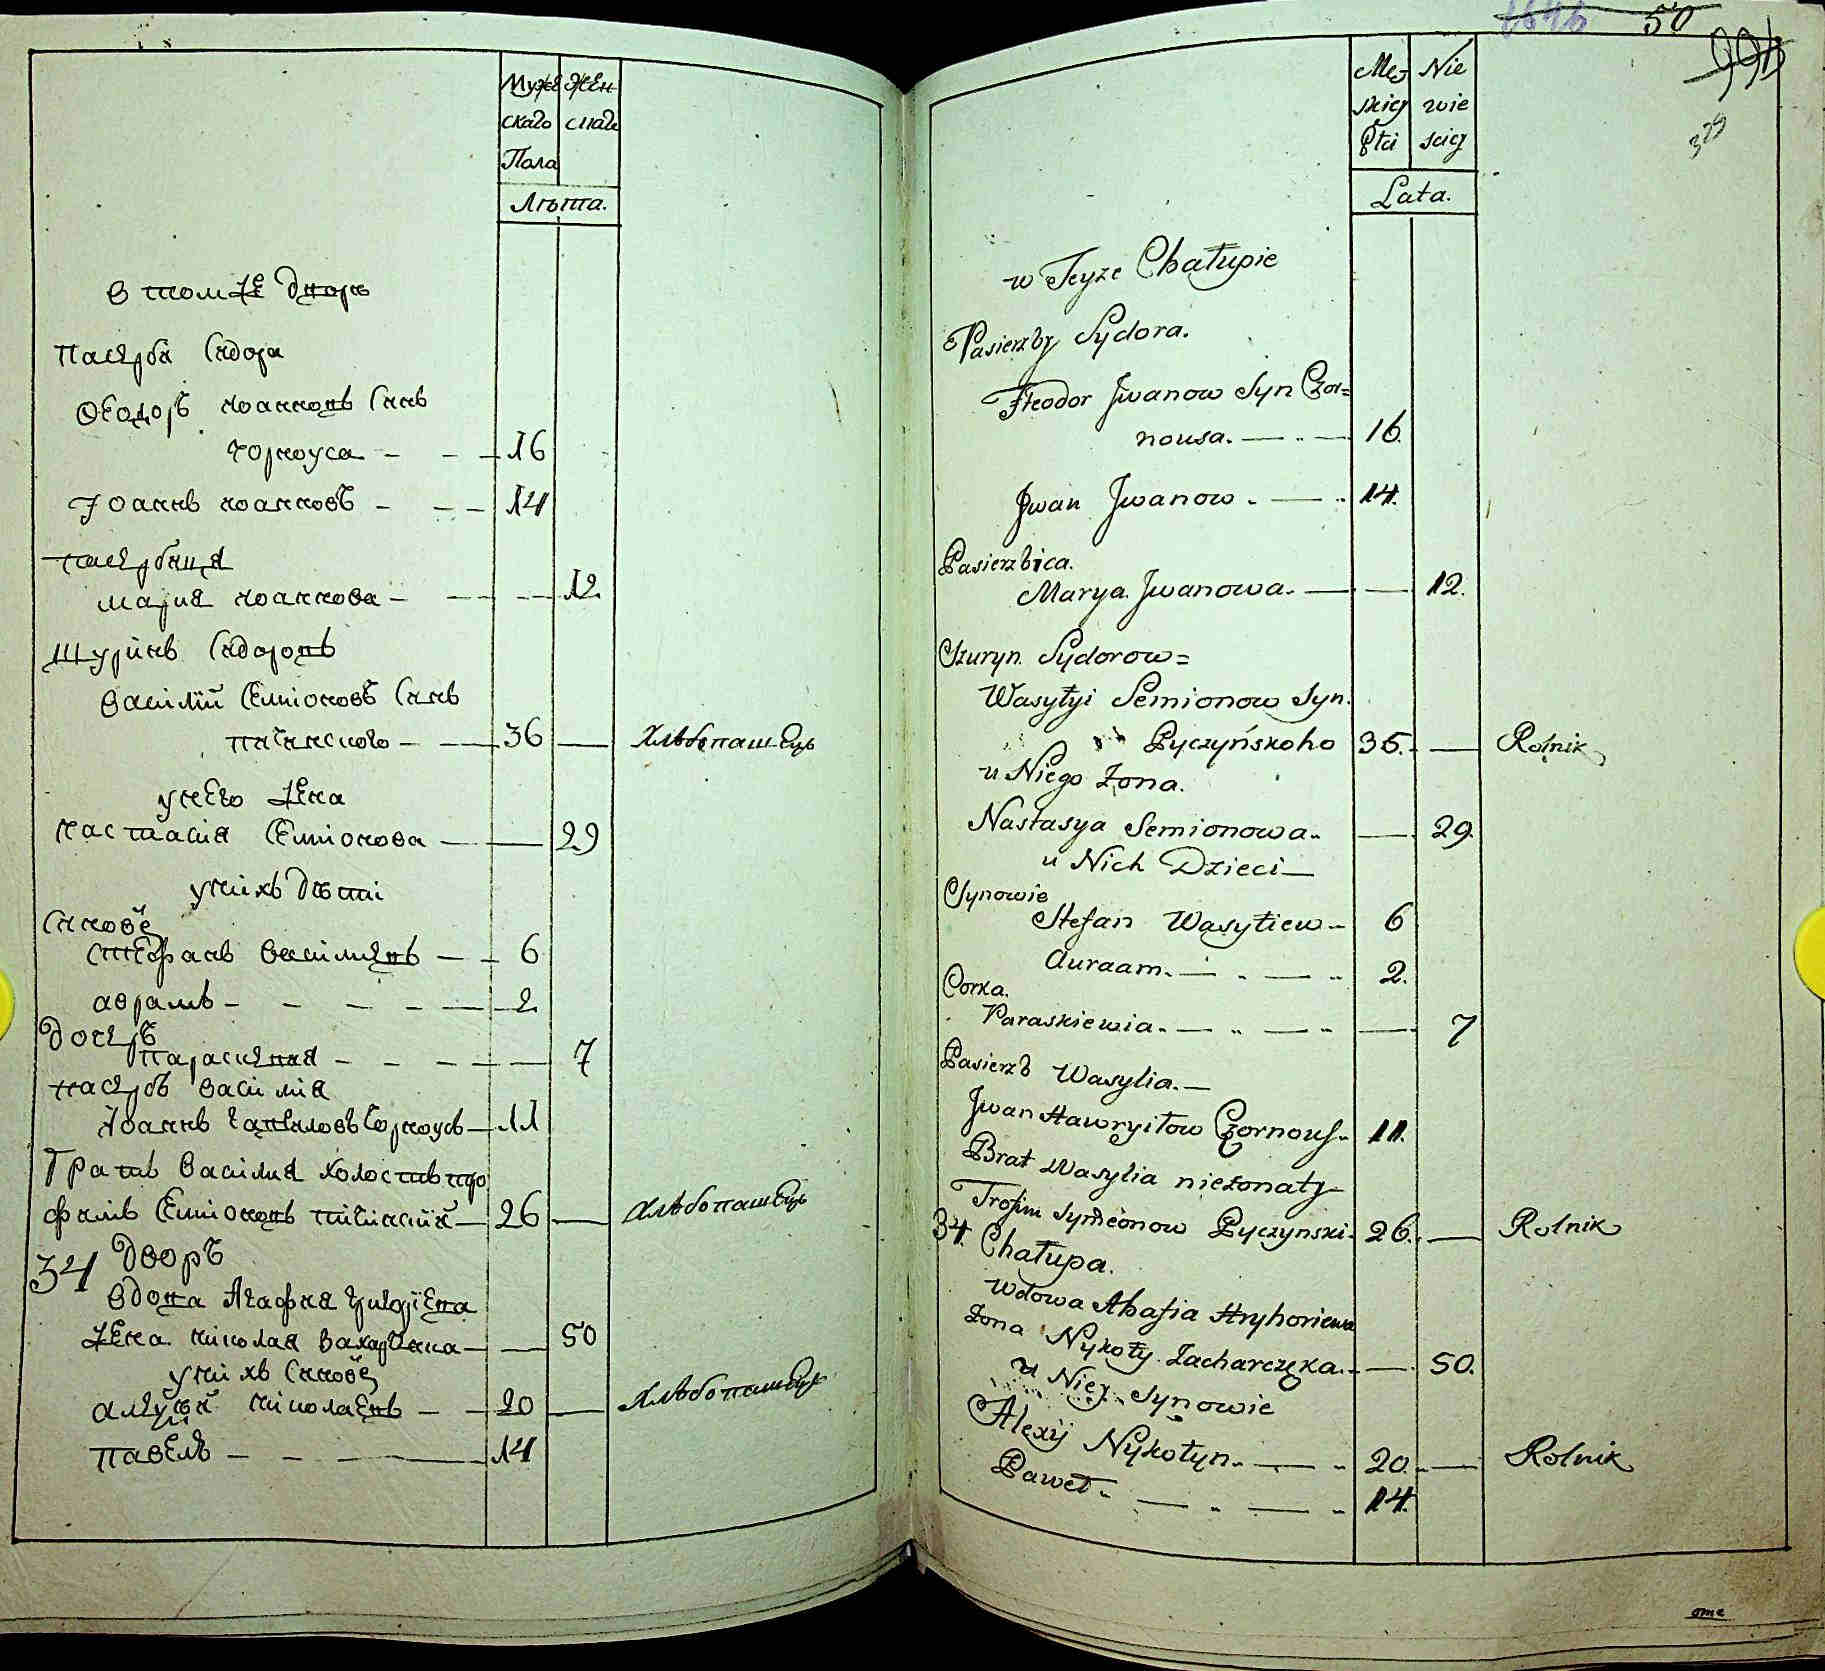 Муже Жен
скаго скаго
Пола
Лѣта.
в томже дворѣ
Пасерба Сидора
Ѳеодоръ Иоанновъ Синъ
Чорноуса — 16
Иоаннъ Иоанновъ — 14
пасербиця
Мария Иоаннова — 12
Шуринъ Сидоровъ
Василий Семионовъ Синъ
Пичинского — 36 — Хлѣбопашецъ
у него жена
Настасия Семионова — 29
у нихъ дѣти
Синовѣ
Стефанъ Василиевъ — 6
Аврамъ — 2
Дочеръ
Параскевия — 7
пасербъ Василия
Иоаннъ Чорноусъ — 11
Братъ Василия холостъ Тро
фимъ Семионовъ — 26 — Хлѣбопашецъ
34 Дворъ
Вдова Агафия Григориева
жена Николая Захарчика — 50
у нихъ Синовѣ
Алексѣй Николаевъ — 20 — Хлѣбопашецъ
Павелъ — 14
50
379
Męz Nie
skiej wie
Płci sciej
Lata.
w Teyze Chałupie
Pasierzby Sydora.
Fteodor Jwanow Syn Czor=
nousa. — 16.
Jwan Jwanow. — 14.
Pasierzbica.
Marya Jwanowa. — 12.
Szuryn Sydorow=
Wasyłyi Semionow Syn.
Pyczyńskoho 35. — Rolnik
u Niego Zona.
Nastasya Semionowa. — 29.
u Nich Dzieci —
Synowie
Stefan Wasyłiew — 6
Auraam. — 2.
Corka.
Paraskiewia. — 7
Pasierzb Wasylia. —
Jwan Hawryiłow Czornous. 11.
Brat Wasylia nieżonaty
Trofim Symeonow Pyczynski. 26. — Rolnik
34. Chałupa.
Wdowa Ahafia Hryhoriewa
Zona Nykoły Zacharczyka. — 50.
u Niey Synowie
Alexij Nykołyn. — 20. — Rolnik
Paweł. — 14.